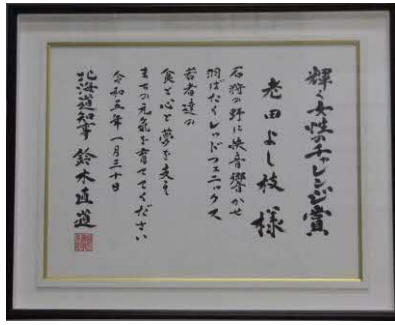 輝く女性のチャレンジ賞
老田よし枝 様
石狩の野に快音響かせ
羽ばたくレッドフェニックス
若者達の
食と心と夢を支え
まちの元気を育ててください
令和五年一月三十日
北海道知事 鈴木直道